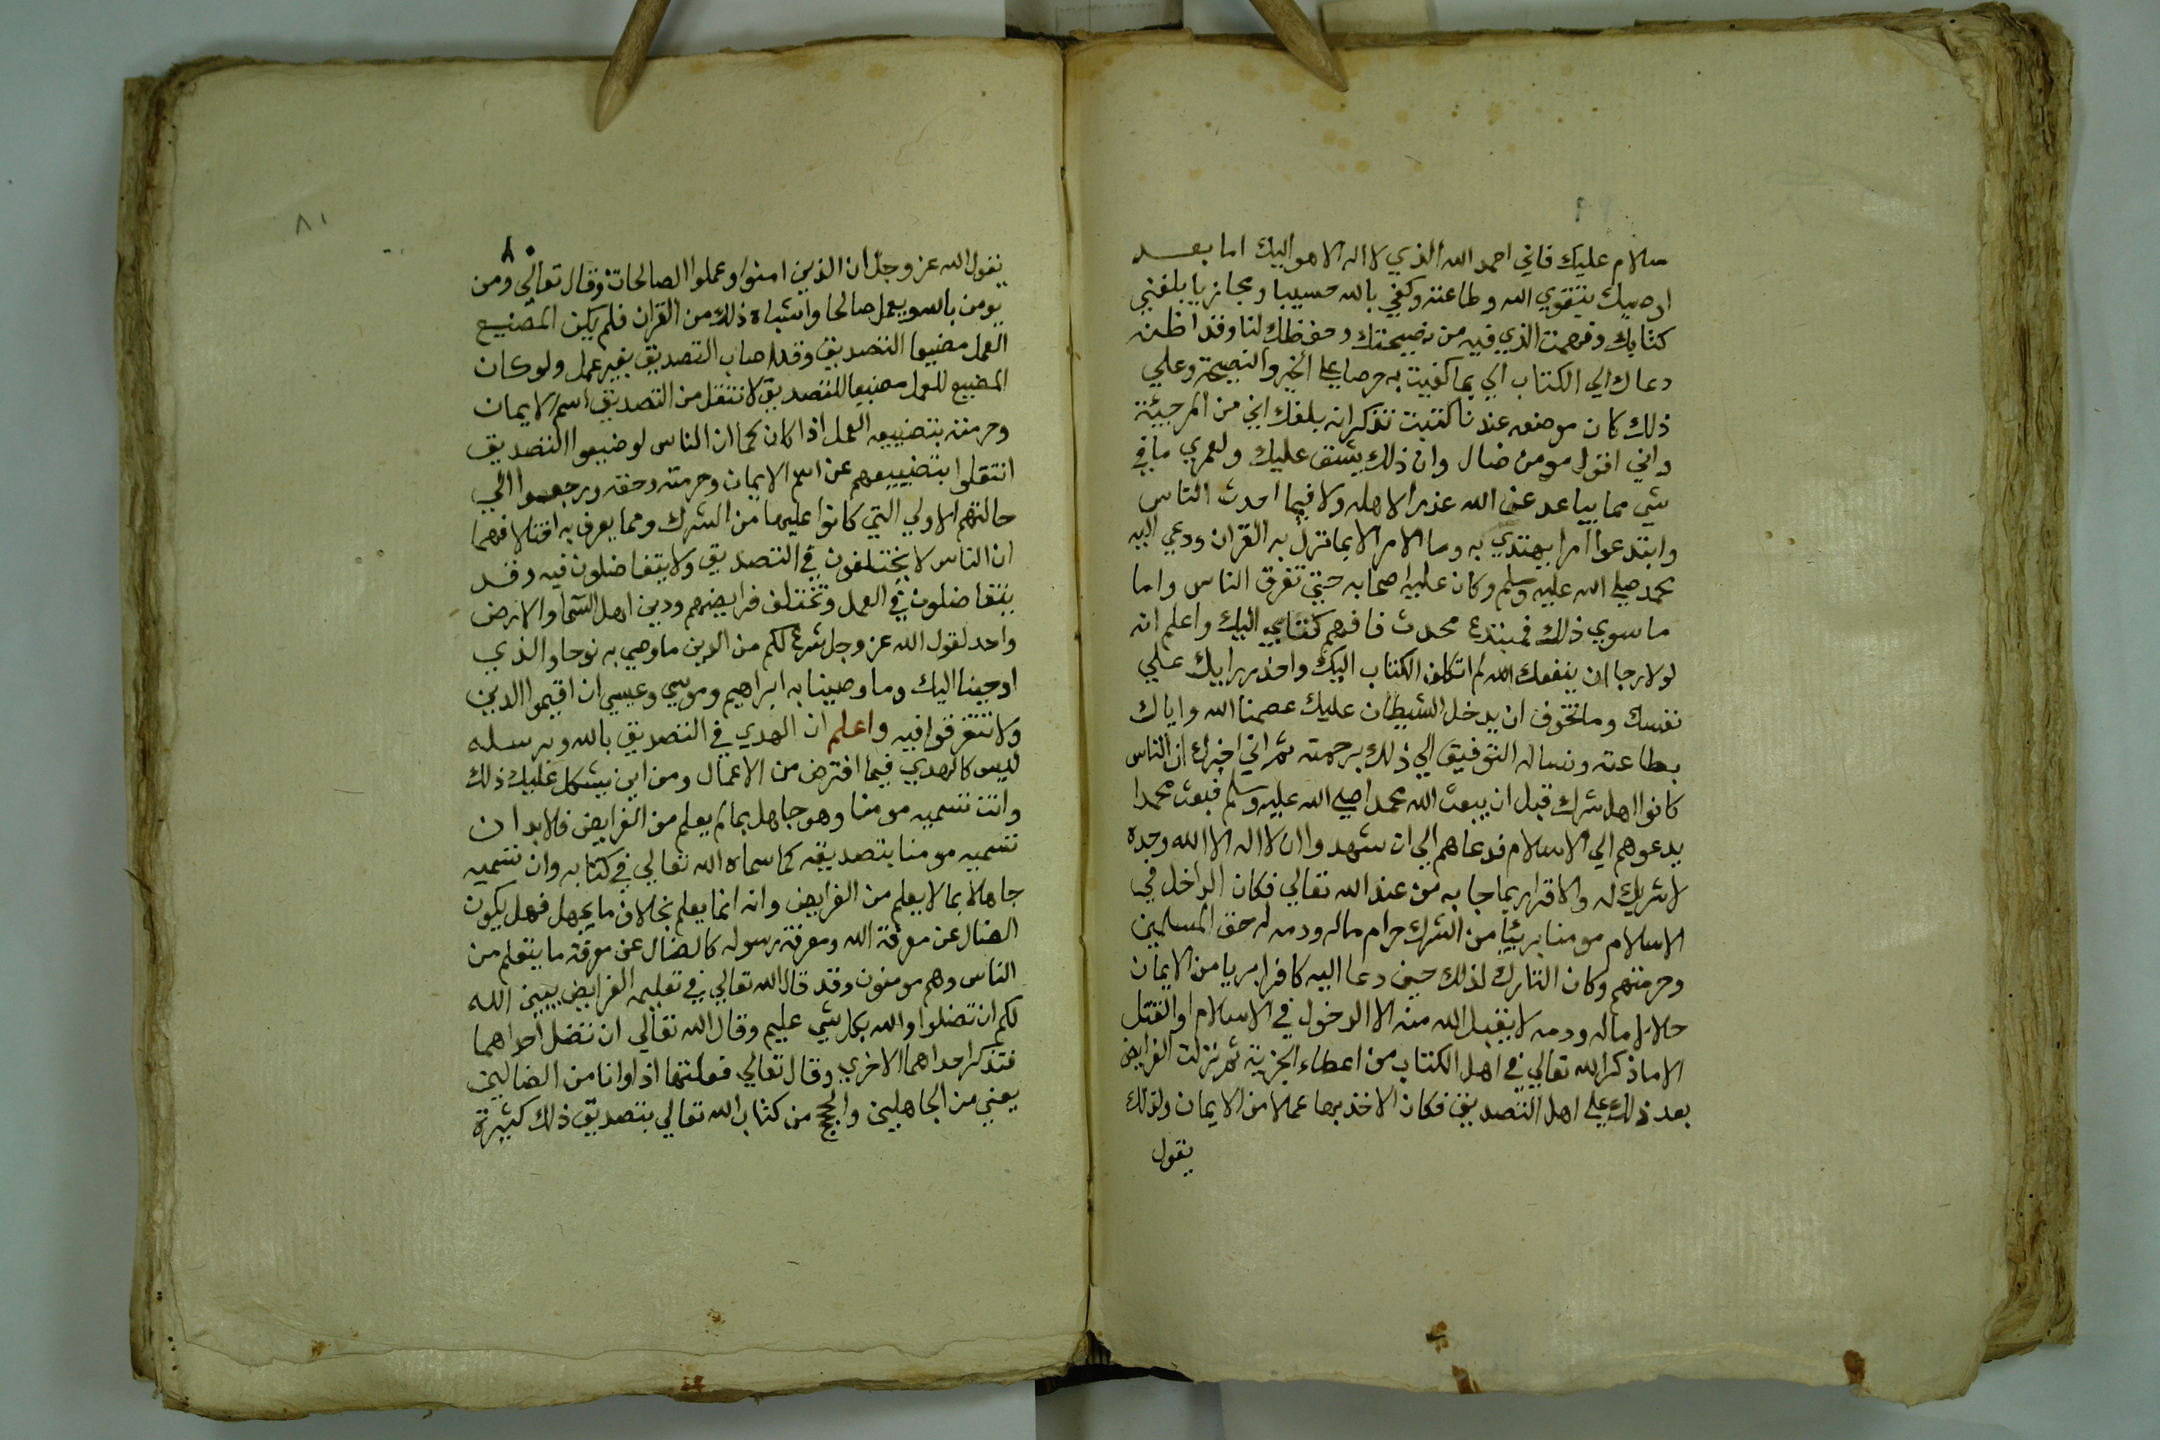 سلام عليك فاني احمد الله الذي لا اله الا هو اليك اما بعد
اوصيك بتقوي الله وطاعته وكفي بالله حسيبا ومجازيا بلغني
كتابك وفهمت الذي فيه من نصيحتك وحفظك لنا وقد اظن
دعاك الي الكتاب الي بما كفيت به حرصا علي الخير والنصيحة وعلي
ذلك كان موضعه عندنا كتبت تذكر انه بلغك اني من المرجيئة
واني اقول مومن ضال وان ذلك يشق عليك ولعمري ما في
شي مما يباعد عن الله عذر الاهله ولا فيما احدث الناس
وابتدعوا امرا يهتدي به وما الامر الا بما نزل به القران ودعي اليه
محمد صلي الله عليه وسلم وكان عليه اصحابه حتي تفرق الناس واما
ما سوي ذلك فمبتدع محدث فافهم كتابي اليك واعلم انه
لولا رجا ان ينفعك الله لم اتكلف الكتاب اليك واحذر رايك علي
نفسك وما تخوف ان يدخل الشيطان عليك عصمنا الله واياك
بطاعته ونساله التوفيق الي ذلك برحمته ثم اني اخبرك ان الناس
كانوا اهل شرك قبل ان يبعث الله محمدا صلي الله عليه وسلم فبعث محمدا
يدعوهم الي الاسلام فدعاهم الي ان يشهدوا ان لا اله الا الله وحده
لا شريك له والاقرار بما جا به من عند الله تعالي فكان الداخل في
الاسلام مومنا بريئا من الشرك حرام ماله ودمه له حق المسلمين
وحرمتهم وكان التارك لذلك حين دعا اليه كافرا بريا من الايمان
حلال ماله ودمه لا يقبل الله منه الا الدخول في الاسلام او القتل
الا ما ذكر الله تعالي في اهل الكتاب من اعطاء الجزية ثم نزلت الفرايض
بعد ذلك علي اهل التصديق فكان الاخذ بها عملا من الايمان ولذلك
يقول
٨١
٨٠
يقول الله عز وجل ان الذين امنوا وعملوا الصالحات وقال تعالي ومن
يومن بالله ويعمل صالحا واشباه ذلك من القران فلم يكن المضيع
العمل مضيعا التصديق وقد اصاب التصديق بغير عمل ولو كان
المضيع للعمل مضيعا للتصديق لانتقل من التصديق اسم الايمان
وحرمته بتضييعه العمل اذا كان كما ان الناس لو ضيعوا التصديق
انتقلوا بتضييعهم عن اسم الايمان وحرمته وحقه ورجعوا الي
حالتهم الاولي التي كانوا عليها من الشرك ومما يعرف به اختلافهما
ان الناس لا يختلفون في التصديق ولا يتفاضلون فيه وقد
يتفاضلون في العمل وتختلف فرايضهم ودين اهل السما والارض
واحد لقول الله عز وجل شرع لكم من الدين ما وصي به نوحا والذي
اوحينا اليك وما وصينا به ابراهيم وموسي وعيسي ان اقيموا الدين
ولا تتفرقوا فيه واعلم ان الهدي في التصديق بالله وبرسله
ليس كالهدي فيما افترض من الاعمال ومن اين يشكل عليك ذلك
وانت تسميه مومنا وهو جاهل بما لم يعلم من الفرايض فلا بد ان
تسميه مومنا بتصديقه كما سماه الله تعالي في كتابه وان تسميه
جاهلا بما لا يعلم من الفرايض وانه انما يعلم بخلاف ما يجهل فهل يكون
الضال عن معرفة الله ومعرفة رسوله كالضال عن معرفة ما يتعلم من
الناس وهم مومنون وقد قال الله تعالي في تعليمه الفرايض يبين الله
لكم ان تضلوا والله بكل شي عليم وقال الله تعالي ان تضل احداهما
فتذكر احداهما الاخري وقال تعالي فعلتها اذا وانا من الضالين
يعني من الجاهلين والحجج من كتاب الله تعالي بتصديق ذلك كثيرة